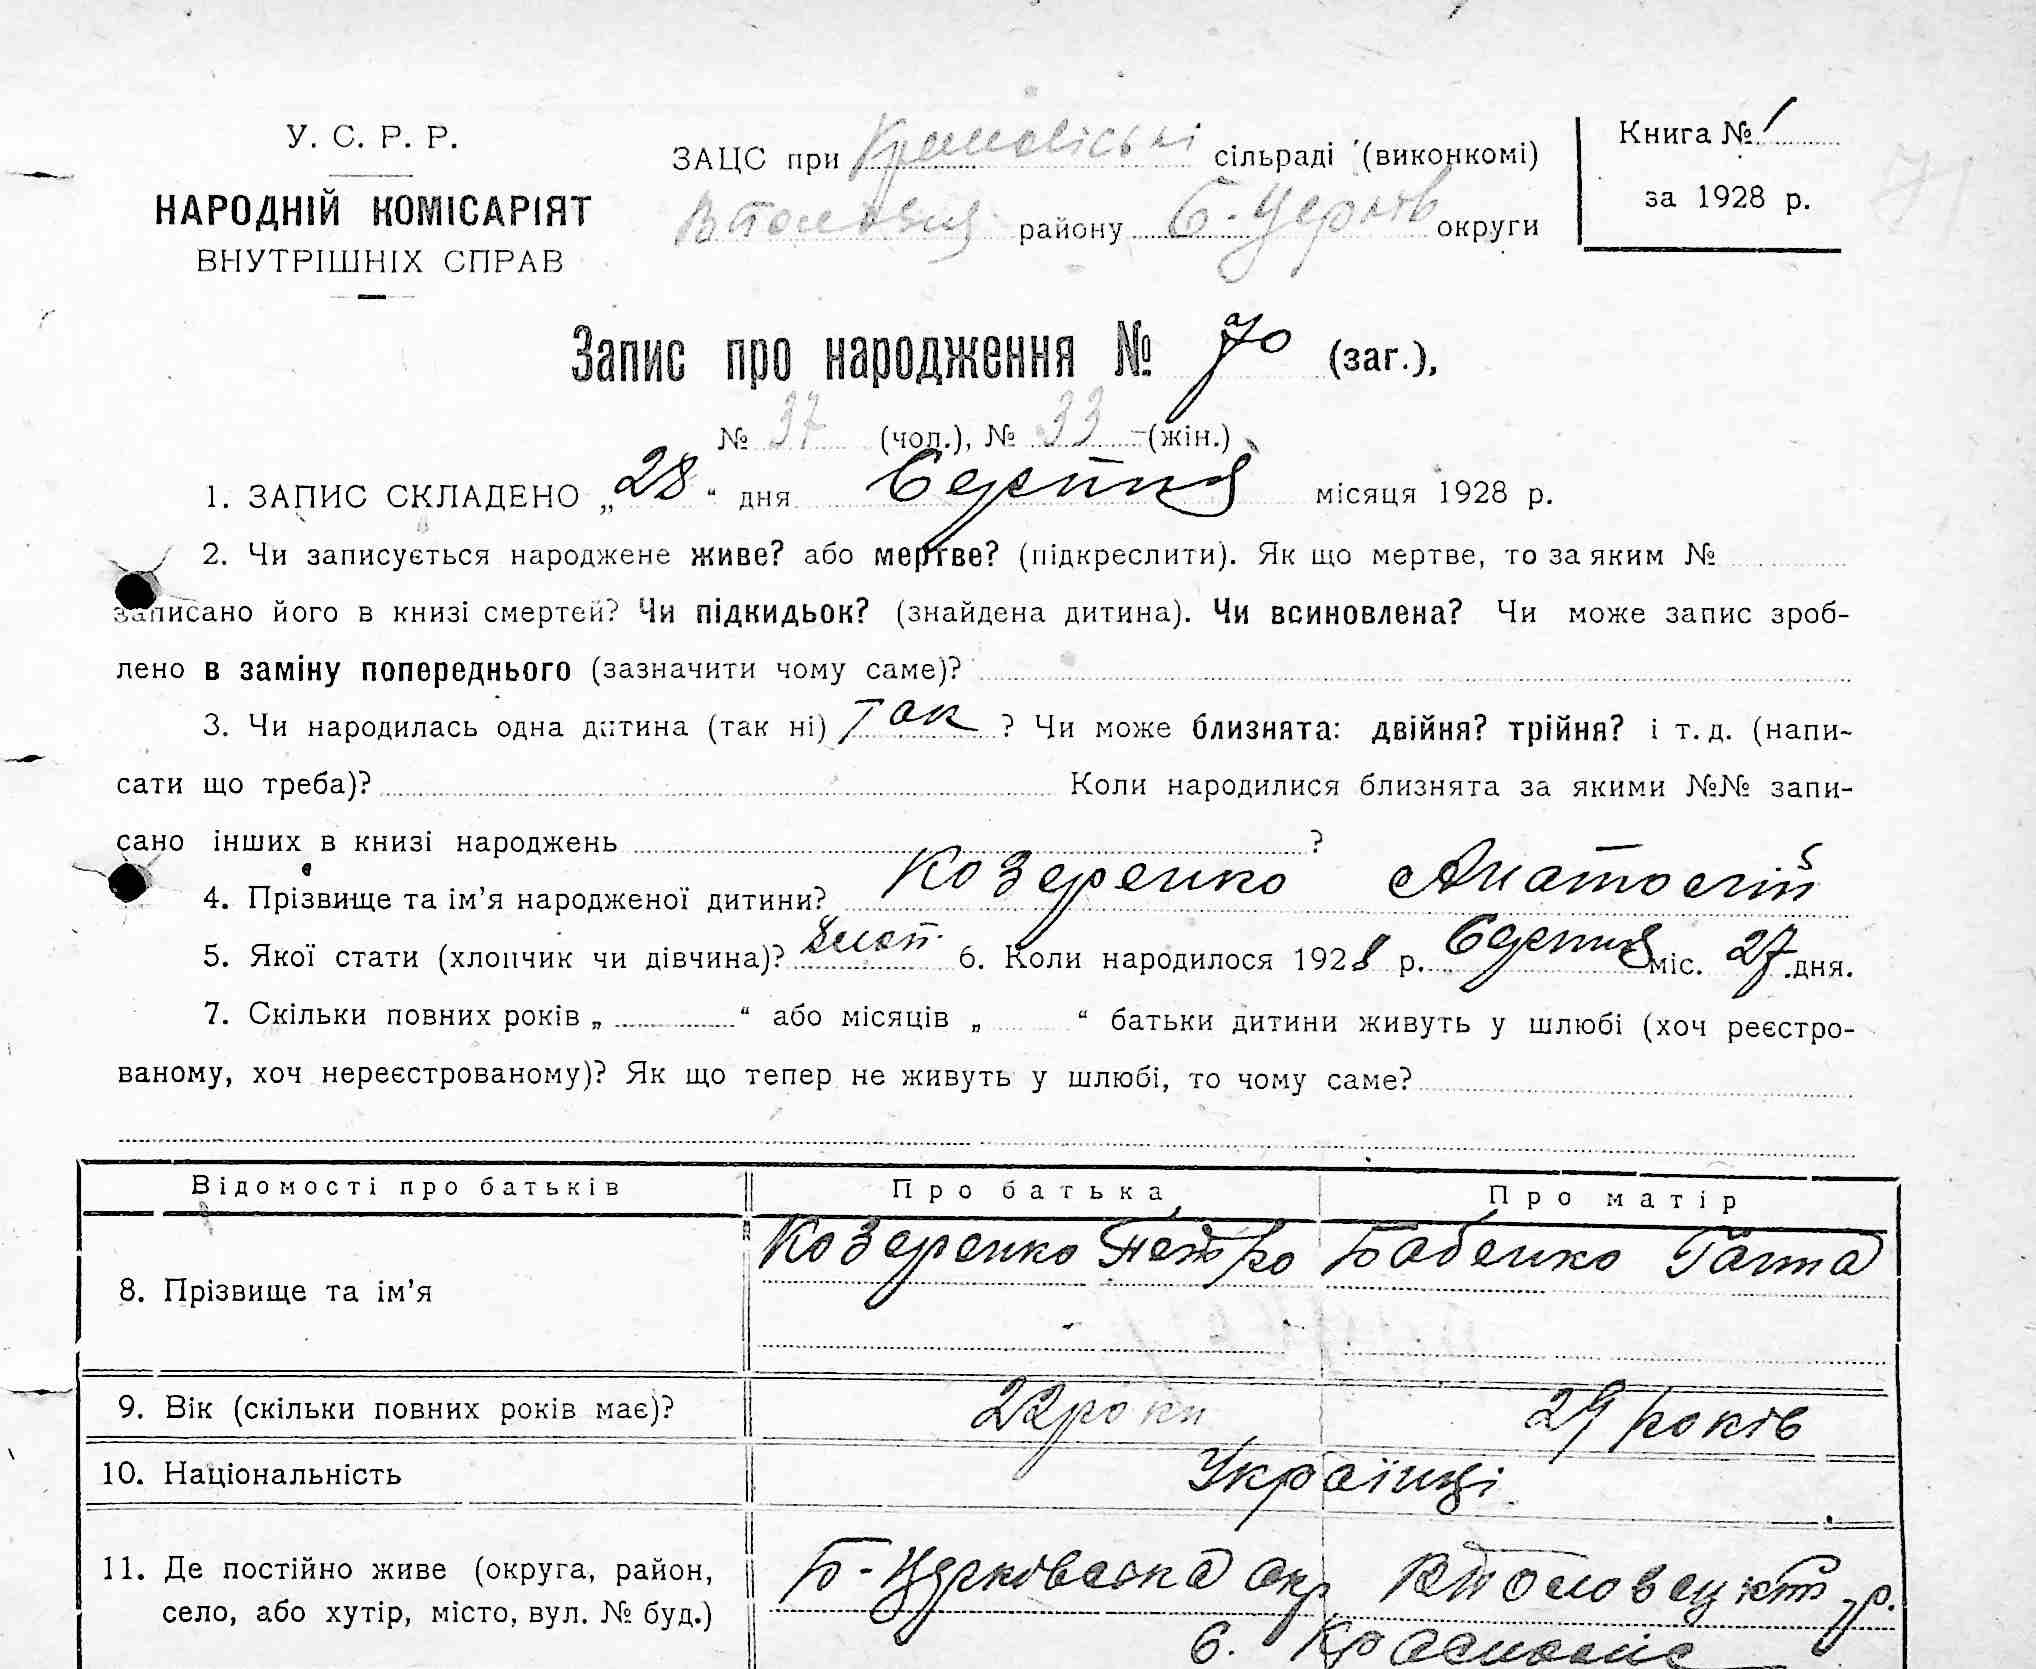 У. С. Р. Р.
НАРОДНІЙ КОМІСАРІЯТ
ВНУТРІШНІХ СПРАВ
ЗАЦС при сільраді (виконкомі)
району Б-Церків округи
Книга № 1
за 1928 р.
Запис про народження № 70 (заг.),
№ 37 (чол.), № 33 (жін.)
1. ЗАПИС СКЛАДЕНО „28“ дня Серпня місяця 1928 р.
2. Чи записується народжене живе? або мертве? (підкреслити). Як що мертве, то за яким №
записано його в книзі смертей? Чи підкидьок? (знайдена дитина). Чи всиновлена? Чи може запис зроб-
лено в заміну попереднього (зазначити чому саме)?
3. Чи народилась одна дитина (так ні) Так ? Чи може близнята: двійня? трійня? і т. д. (напи-
сати що треба)? Коли народилися близнята за якими №№ запи-
сано інших в книзі народжень ?
4. Прізвище та ім’я народженої дитини? Козеренко Анатолій
5. Якої стати (хлопчик чи дівчина)? хлоп. 6. Коли народилося 1928 р. Серпня міс. 27 дня.
7. Скільки повних років „ “ або місяців „ “ батьки дитини живуть у шлюбі (хоч реєстро-
ваному, хоч нереєстрованому)? Як що тепер не живуть у шлюбі, то чому саме?
Відомості про батьків Про батька Про матір
8. Прізвище та ім’я Козеренко Петро Бабенко Ганна
9. Вік (скільки повних років має)? 22 роки 29 років
10. Національність Українці
11. Де постійно живе (округа, район, Б-Церківська окр р.
село, або хутір, місто, вул. № буд.) с.